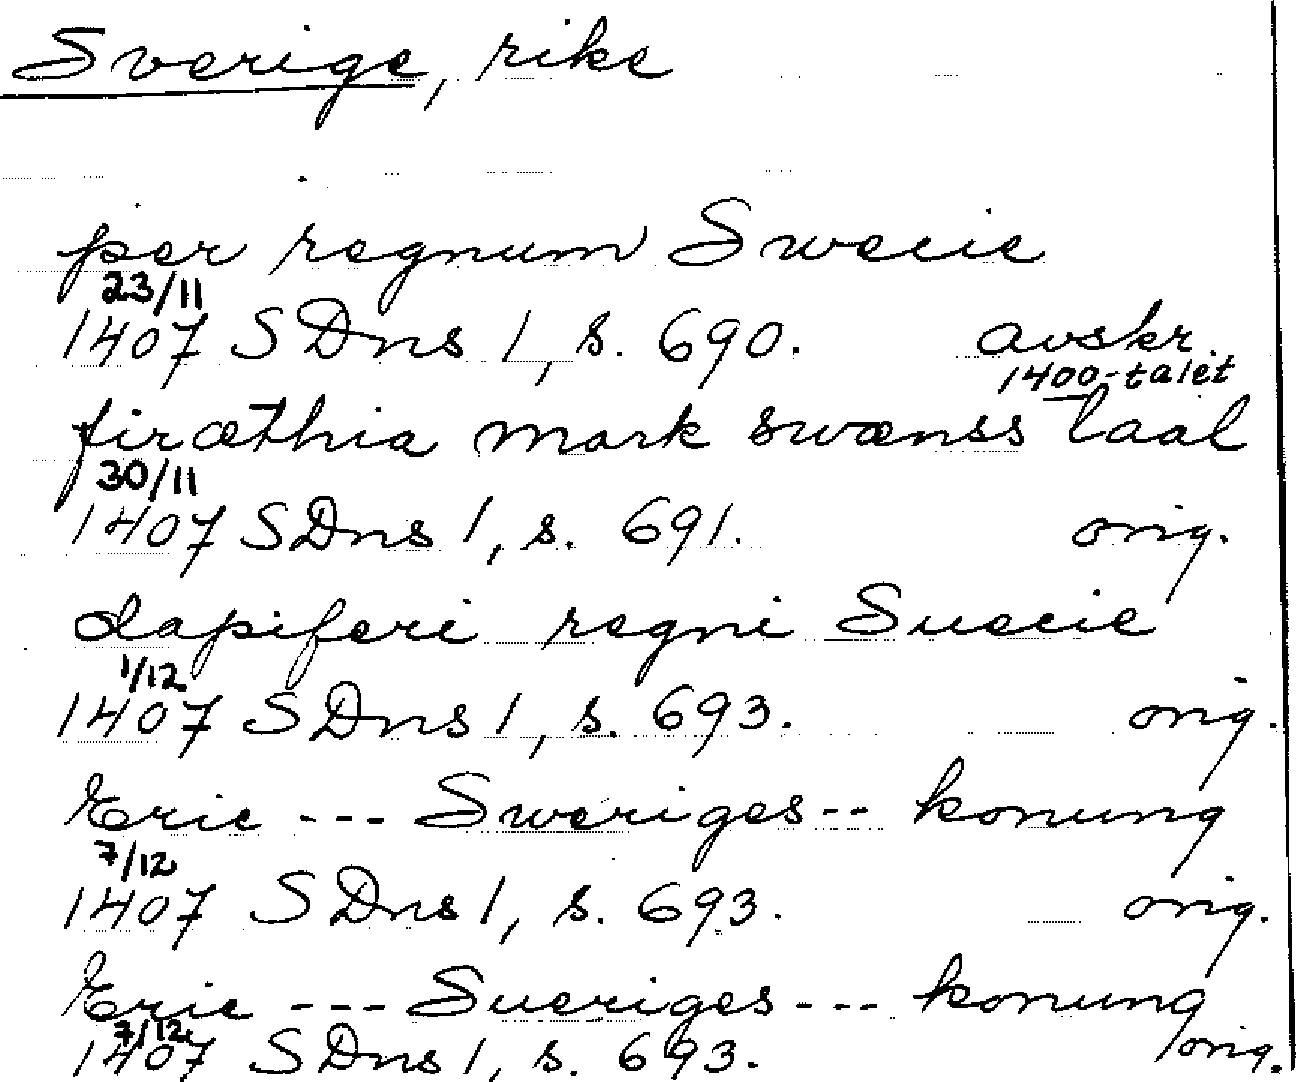 Sverige, rike
per regnum Swecie
23/11
1407 SDns 1, s. 690. avskr.
1400-talet
firæthia mark swænss taal
30/11
1407 SDns 1, s. 691. orig.
dapiferi regni Suecie
1/12
1407 SDns 1, s. 693. orig.
Eric --- Sweriges -- konung
7/12
1407 SDns 1, s. 693. orig.
Eric --- Sueriges --- konung
7/12
1407 SDns 1, s. 693. orig.